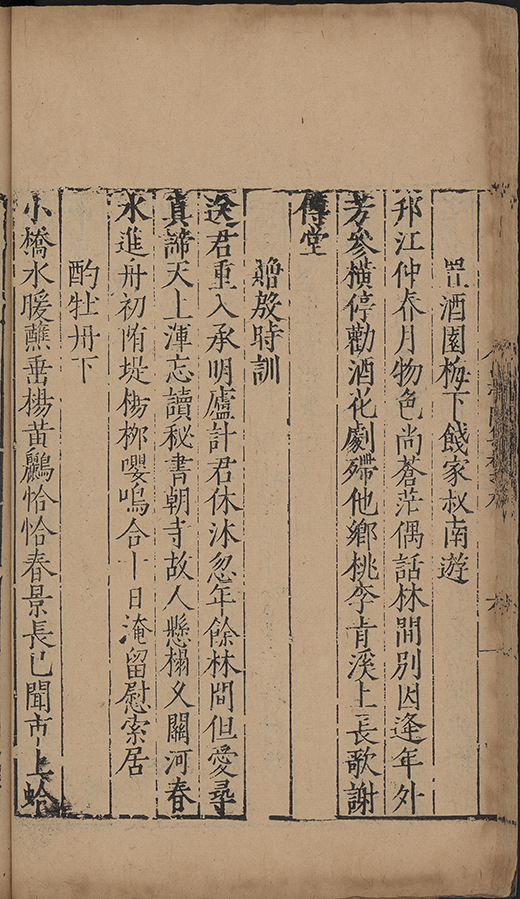 置酒園梅下餞家叔南遊
邗江仲春月物色尚蒼茫偶話林間別因逢年外
芳參橫停勸酒花劇殢他鄉桃李肯溪上長歌謝
傅堂
贈殷時訓
送君重入承明廬計君休沐忽年餘林間但愛尋
真諦天上渾忘讀秘書朝寺故人懸榻久關河春
水進舟初陏堤楊栁嚶鳴合十日淹留慰索居
酌牡丹下
小橋水暖蘸垂楊黃鸝恰恰春景長已聞市上蛤